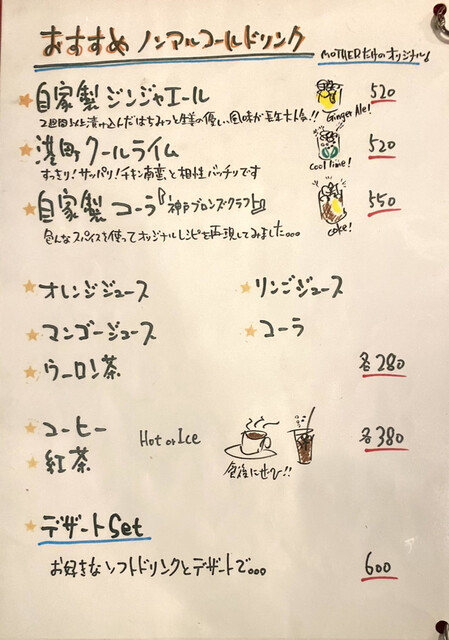 おすすめ ノンアルコールドリンク MOTHERだけのオリジナル!
自家製 ジンジャエール Ginger Ale! 520
2週間以上漬け込んだはちみつと生姜の優しい風味が大人気!!
港町クールライム cool lime! 520
すっきり!サッパリ!チキン南蛮と相性バッチリです
自家製 コーラ 神戸ブロンズクラフト coke! 550
色んなスパイスを使ってオリジナルレシピを再現してみました。。。
オレンジジュース リンゴジュース
マンゴージュース コーラ
ウーロン茶 各280
コーヒー Hot or Ice 各380
紅茶 食後にぜひ!!
デザートSet
お好きなソフトドリンクとデザートで。。。 600